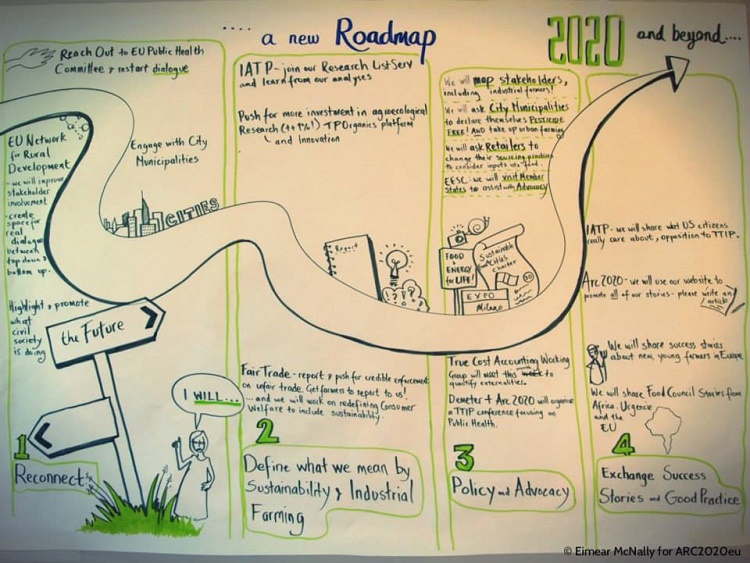 .... a new Roadmap 2020 and beyond....
Reach Out to EU Public Health
Committee & restart dialogue
EU Network
for Rural
Development
- we will improve
stakeholder
involvement
- create
space for
real
dialogue
between
top down &
bottom up.
Engage with City
Municipalities
CITIES
Highlight & promote
what
civil
society
is doing
the Future
I WILL...
1
Reconnect
IATP - join our Research ListServ
and learn from our analyses
Push for more investment in agroecological
Research (++%!) TPOrganics platform
and Innovation
Report
Fair Trade - report & push for credible enforcement
on unfair trade. Get farmers to report to us!
... and we will work on redefining Consumer
Welfare to include sustainability.
2
Define what we mean by
Sustainability & Industrial
Farming
We will map stakeholders,
including industrial farmers!
We will ask City Municipalities
to declare themselves PESTICIDE
FREE! AND take up urban farming
We will ask Retailers to
change their sourcing practices
to consider inputs
EESC - we will visit Member
States to assist with Advocacy
FOOD +
ENERGY
for LIFE!
Sustainable
Cities
Charter
EXPO
Milano
True Cost Accounting Working
Group will meet this to
quantify externalities.
Demeter + Arc2020 will organise
a TTIP conference focusing on
Public Health.
3
Policy and Advocacy
IATP - we will share what US citizens
really care about, opposition to TTIP.
Arc2020 - we will use our website to
promote all of our stories - please write an
article
We will share success stories
about new, young farmers in Europe
We will share Food Council Stories from
Africa, Urgencie
and the
EU
4
Exchange Success
Stories and Good Practice
© Eimear McNally for ARC2020eu